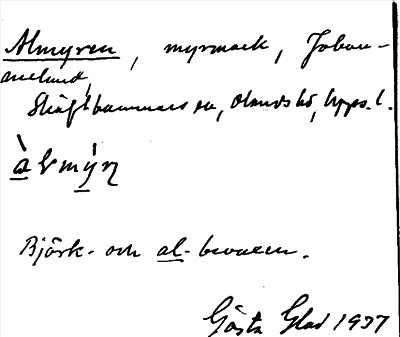 Almyren, myrmark, Johan-
neslund,
Skäfthammars sn, Olands hd, Upps. l.
Björk- och al-bevuxen.
Gösta Glad 1937